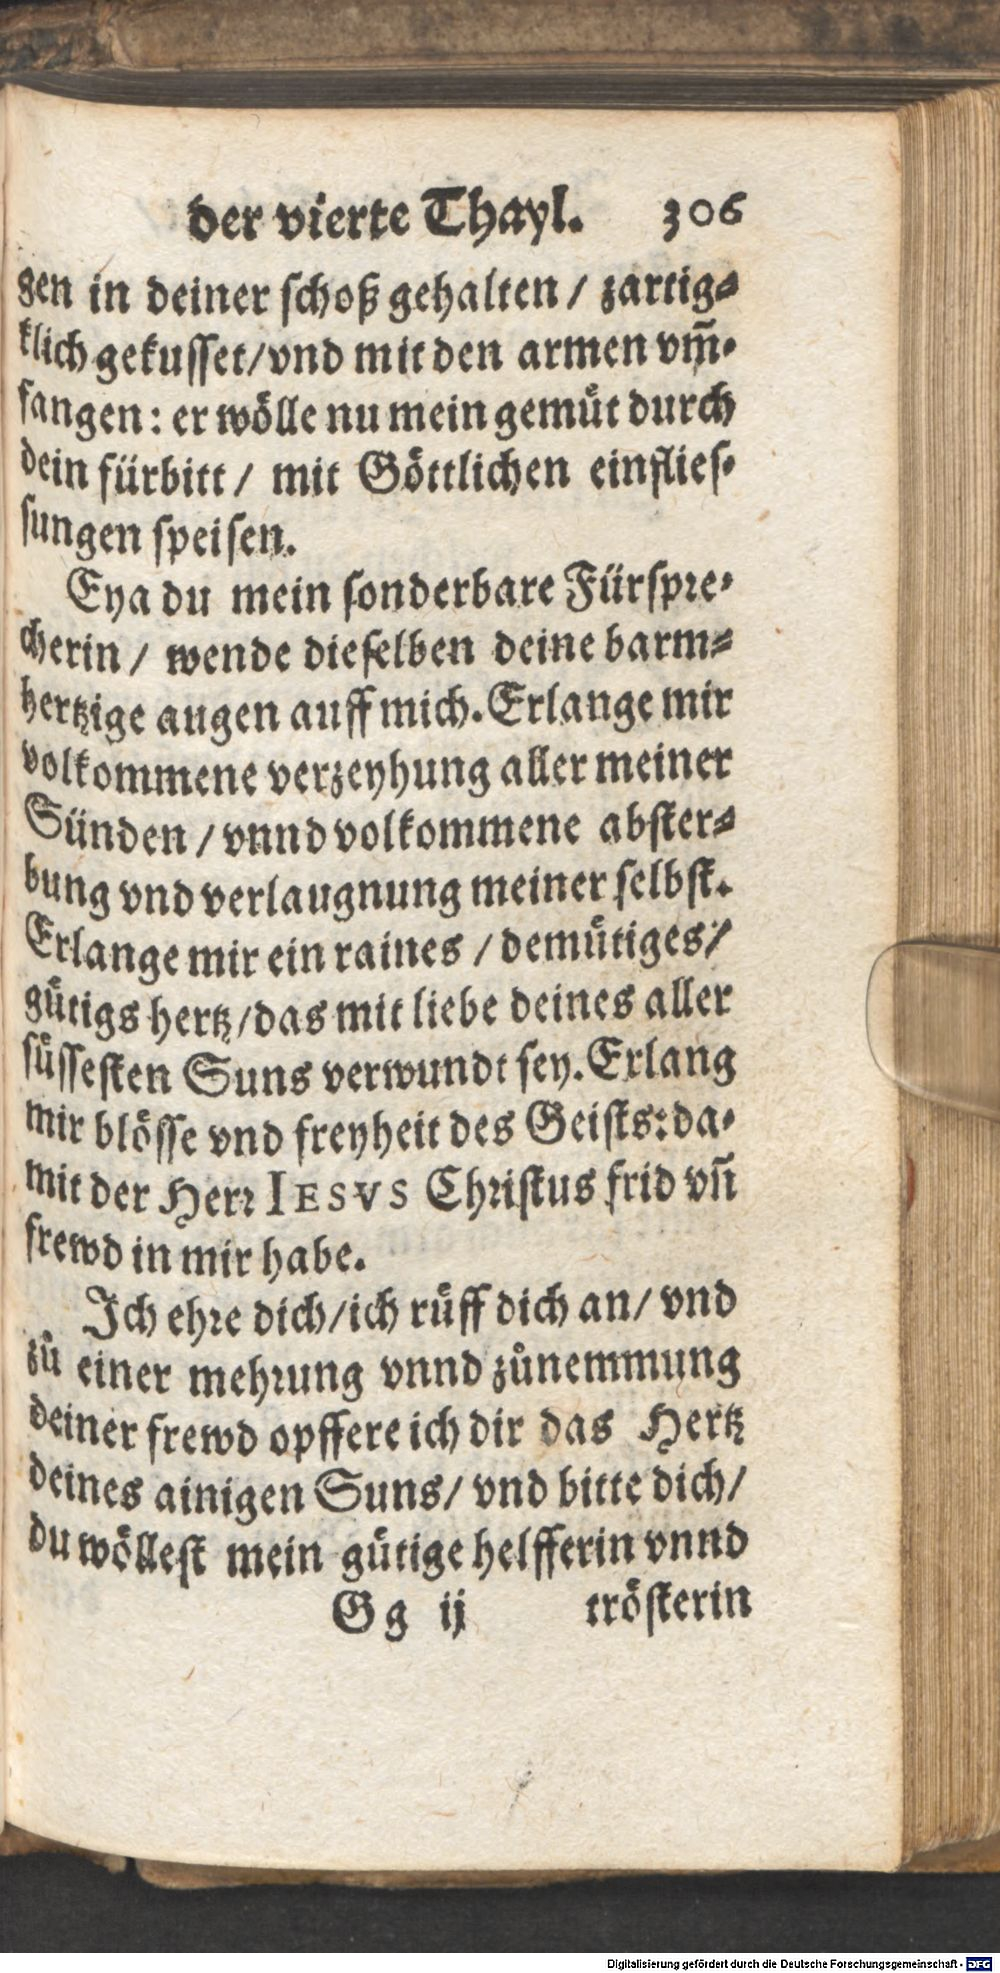 der vierte Thayl. 306
gen in deiner schoß gehalten / zartig⸗
klich gekusset/vnd mit den armen vm̃⸗
fangen: er wölle nu mein gemuͤt durch
dein fürbitt / mit Göttlichen einflies⸗
sungen speisen.
Eya du mein sonderbare Fürspre⸗
cherin / wende dieselben deine barm⸗
hertzige augen auff mich. Erlange mir
volkommene verzeyhung aller meiner
Sünden / vnnd volkommene abster⸗
bung vnd verlaugnung meiner selbst.
Erlange mir ein raines / demuͤtiges /
guͤtigs hertz/das mit liebe deines aller
suͤssesten Suns verwundt sey. Erlang
mir blösse vnd freyheit des Geists: da⸗
mit der Herr IESVS Christus frid vñ
frewd in mir habe.
Ich ehre dich/ich ruͤff dich an/ vnd
zů einer mehrung vnnd zůnemmung
deiner frewd opffere ich dir das Hertz
deines ainigen Suns/ vnd bitte dich/
du wöllest mein guͤtige helfferin vnnd
Gg ij trösterin
Digitalisierung gefördert durch die Deutsche Forschungsgemeinschaft - DFG